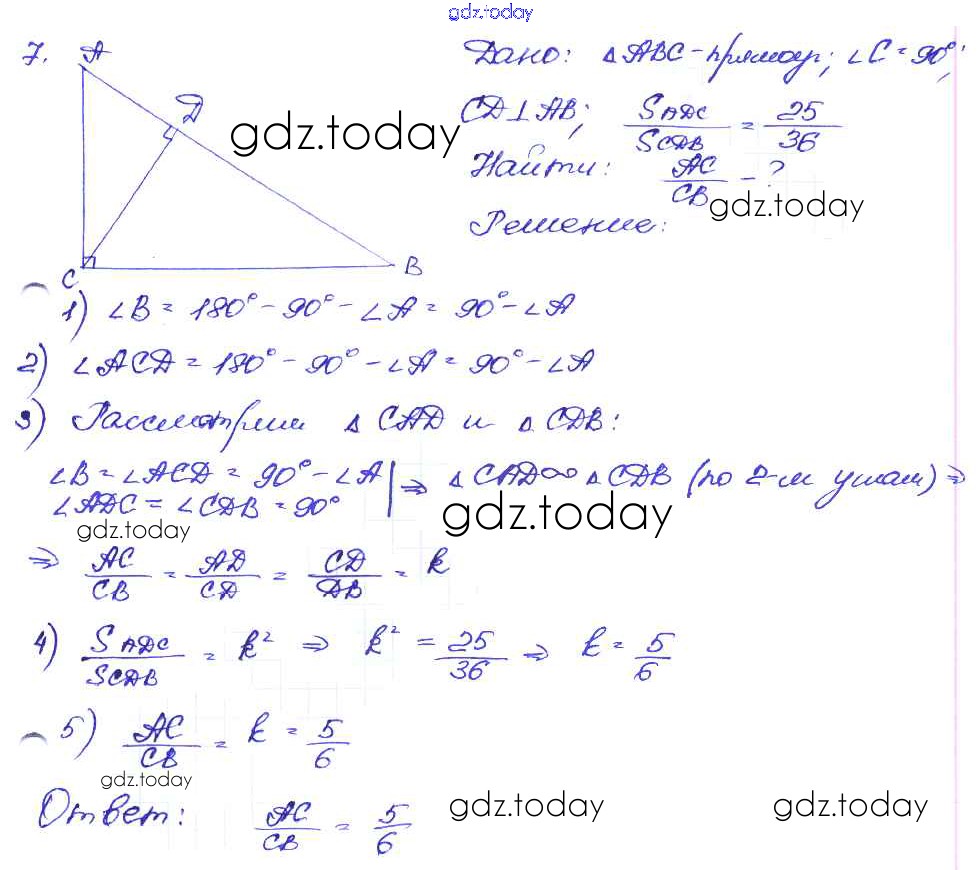 gdz.today
7.
A
D
C
B
Дано: △ABC - прямоуг; ∠C = 90°;
CD⊥AB; S ADC / S CDB = 25/36
gdz.today
Найти: AC/CB - ?
gdz.today
Решение:
1) ∠B = 180° - 90° - ∠A = 90° - ∠A
2) ∠ACD = 180° - 90° - ∠A = 90° - ∠A
3) Рассмотрим △CAD и △CDB:
∠B = ∠ACD = 90° - ∠A | ⇒ △CAD ∞ △CDB (по 2-м углам) ⇒
∠ADC = ∠CDB = 90°
gdz.today
gdz.today
⇒ AC/CB = AD/CD = CD/DB = k
4) S ADC / S CDB = k² ⇒ k² = 25/36 ⇒ k = 5/6
5) AC/CB = k = 5/6
gdz.today
Ответ: AC/CB = 5/6
gdz.today
gdz.today